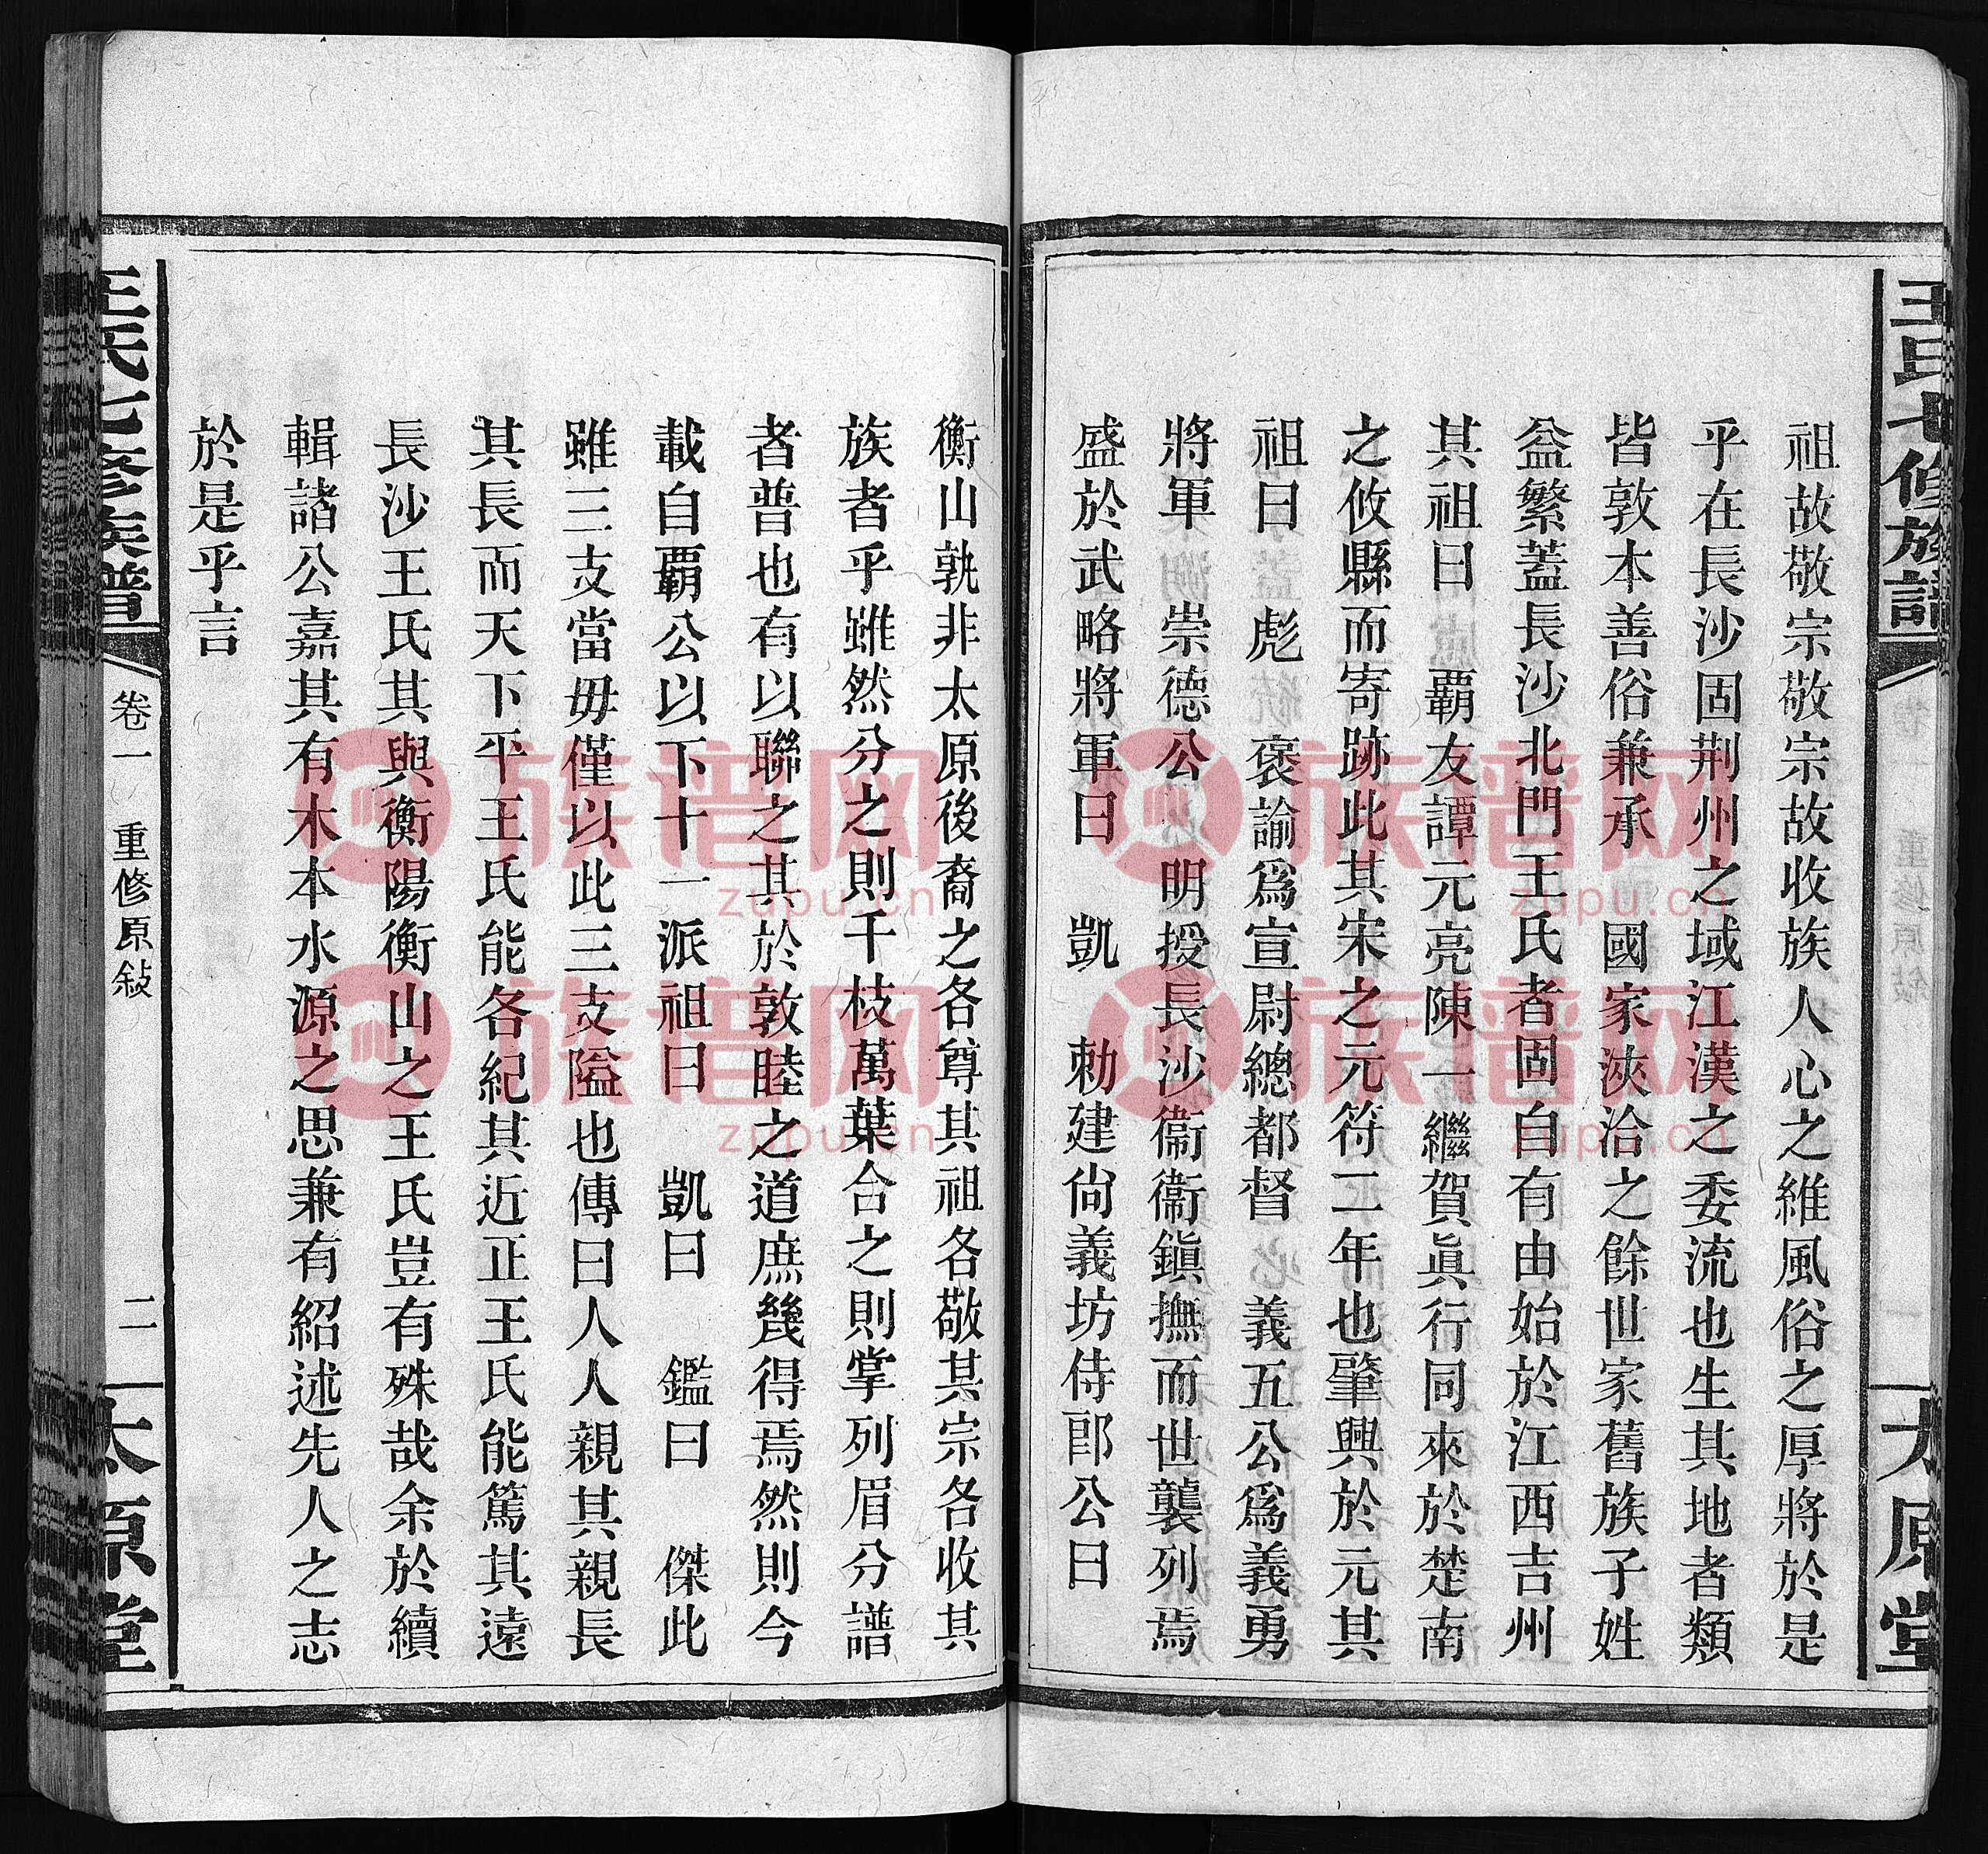 王氏七修族譜
太原堂
祖故敬宗敬宗故收族人心之維風俗之厚將於是
乎在長沙固荆州之域江漢之委流也生其地者類
皆敦本善俗兼承 國家浹洽之餘世家舊族子姓
益繁蓋長沙北門王氏者固自有由始於江西吉州
其祖曰 覇友譚元亮陳一繼賀眞行同來於楚南
之攸縣而寄跡此其宋之元符二年也肇興於元其
祖曰 彪 褒諭爲宣尉總都督 義五公爲義勇
將軍 崇德公 明授長沙衞衞鎭撫而世襲列焉
盛於武略將軍曰 凱 勅建尙義坊侍郎公曰
衡山孰非太原後裔之各尊其祖各敬其宗各收其
族者乎雖然分之則千枝萬葉合之則掌列眉分譜
者普也有以聯之其於敦睦之道庶幾得焉然則今
載自覇公以下十一派祖曰 凱曰 鑑曰 傑此
雖三支當毋僅以此三支隘也傳曰人人親其親長
其長而天下平王氏能各紀其近正王氏能篤其遠
長沙王氏其與衡陽衡山之王氏豈有殊哉余於續
輯諸公嘉其有木本水源之思兼有紹述先人之志
於是乎言
王氏七修族譜
卷一 重修原敍 二
太原堂
族谱网
zupu.cn
族谱网
zupu.cn
族谱网
zupu.cn
族谱网
zupu.cn